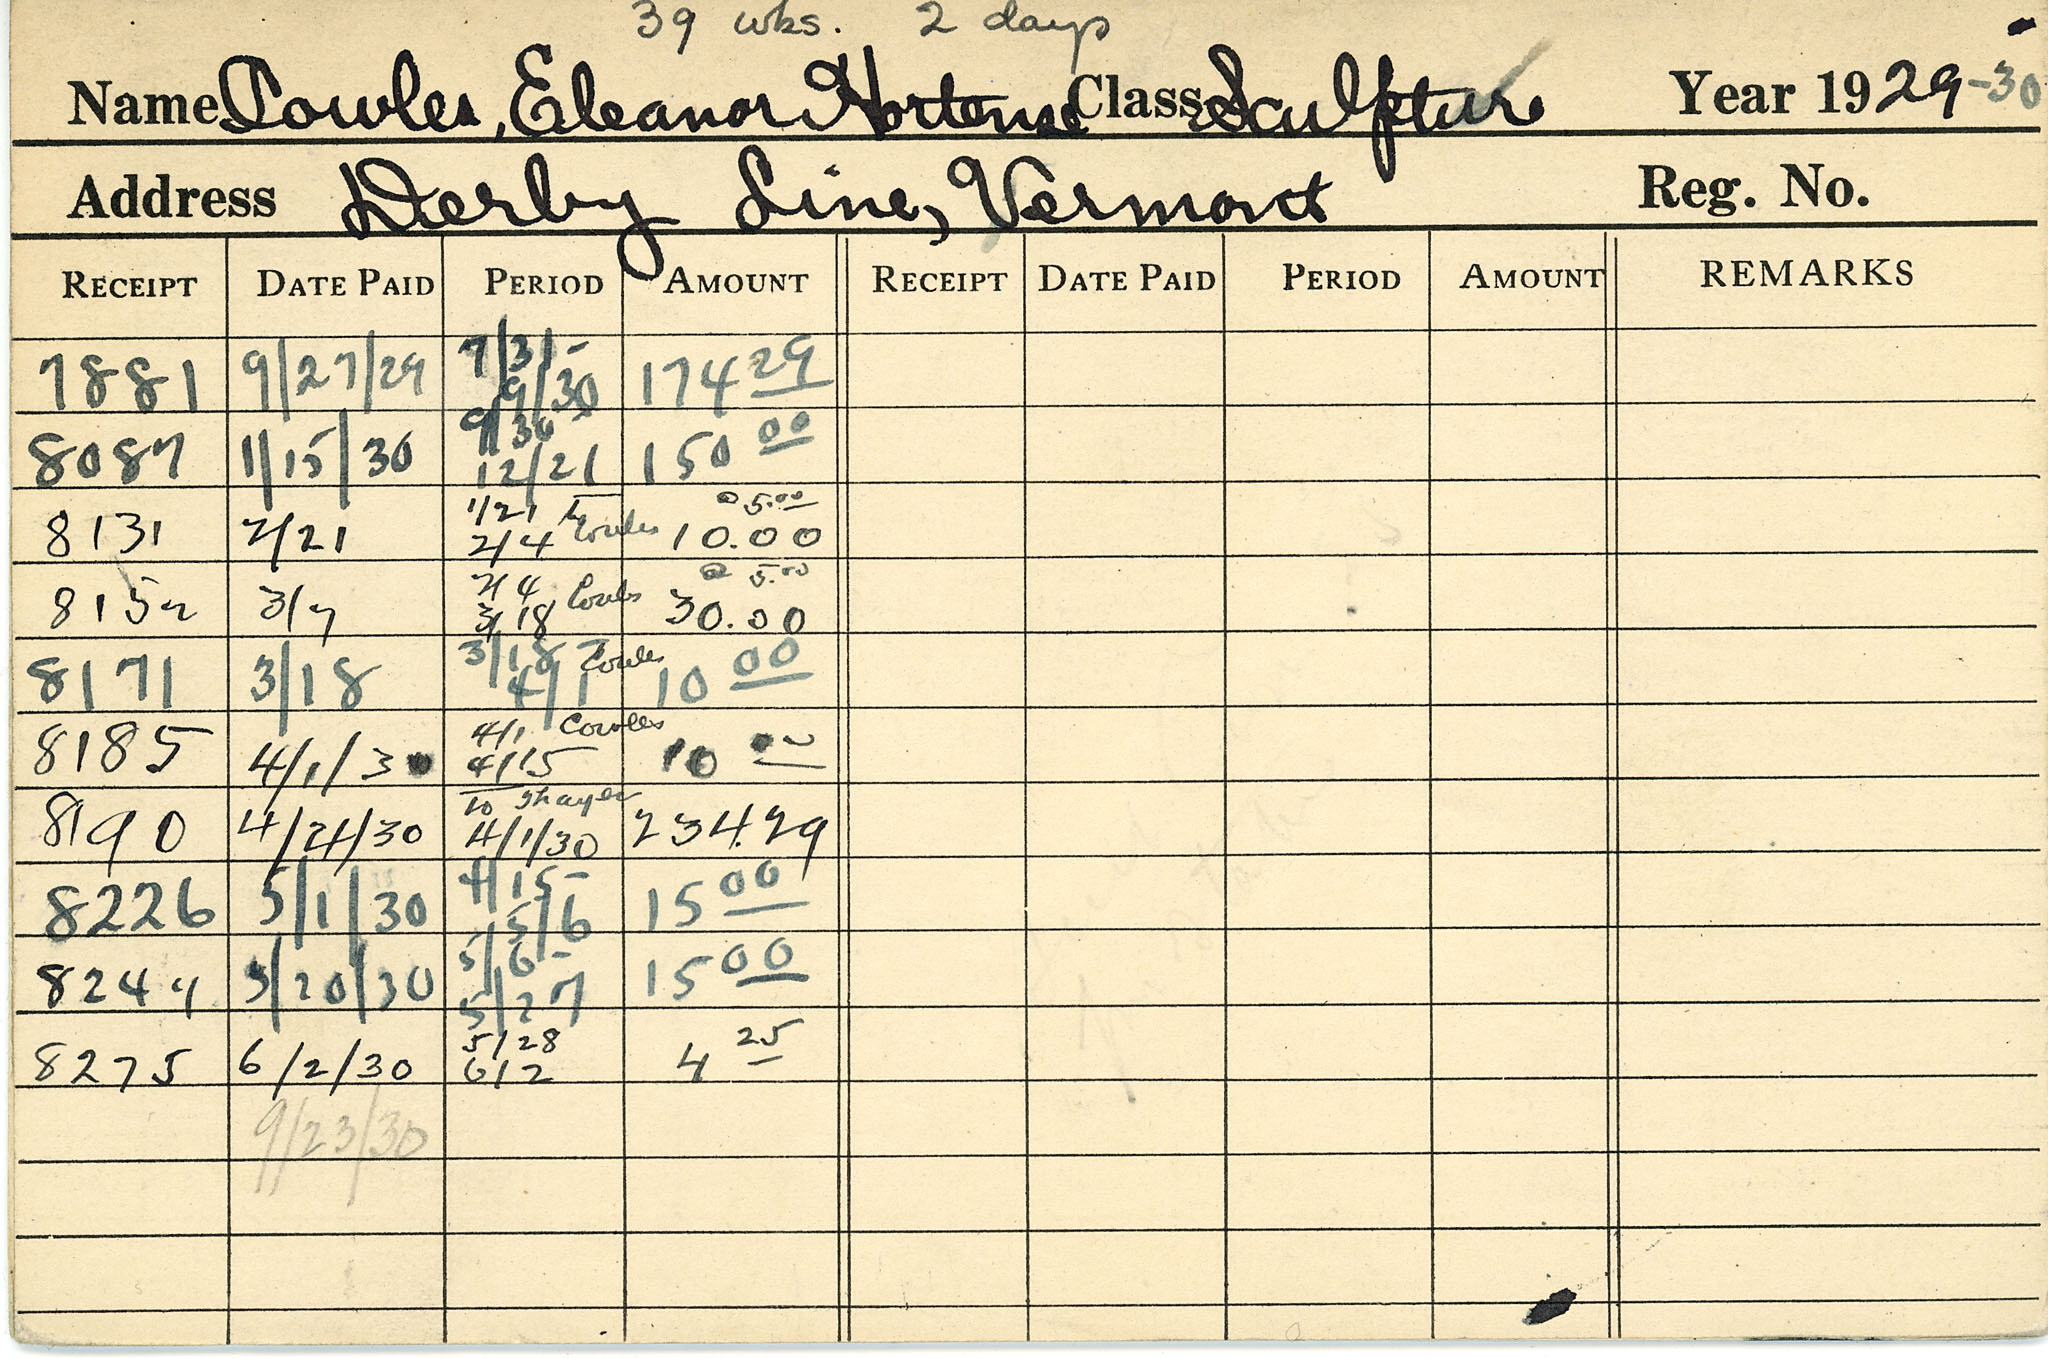 39 wks. 2 days
Name Cowles, Eleanor Hortense Class Sculpture Year 1929-30
Address Derby Line, Vermont Reg. No.
RECEIPT DATE PAID PERIOD AMOUNT RECEIPT DATE PAID PERIOD AMOUNT REMARKS
7/31-
7881 9/27/29 9/30 174 29
9/30-
8087 1/15/30 12/21 150 00
1/21 to @ 5.00
8131 2/21 2/4 Cowles 10.00
2/4 Cowles @ 5.00
8152 3/7 3/18 30.00
3/18- Cowles
8171 3/18 4/1 10 00
4/1 Cowles
8185 4/1/30 4/15 10 00
to Thayer
8190 4/24/30 4/1/30 234.29
4/15-
8226 5/1/30 5/6 15 00
5/6-
8249 5/20/30 5/27 15 00
5/28
8275 6/2/30 6/2 4 25
9/23/30